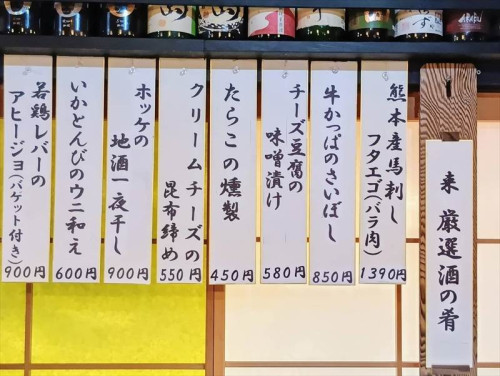 来 厳選酒の肴
熊本産馬刺し
フタエゴ(バラ肉)
1390円
牛かっぱのさいぼし
850円
チーズ豆腐の
味噌漬け
580円
たらこの燻製
450円
クリームチーズの
昆布締め
550円
ホッケの
地酒一夜干し
900円
いかとんびのウニ和え
600円
若鶏レバーの
アヒージョ(バゲット付き)
900円